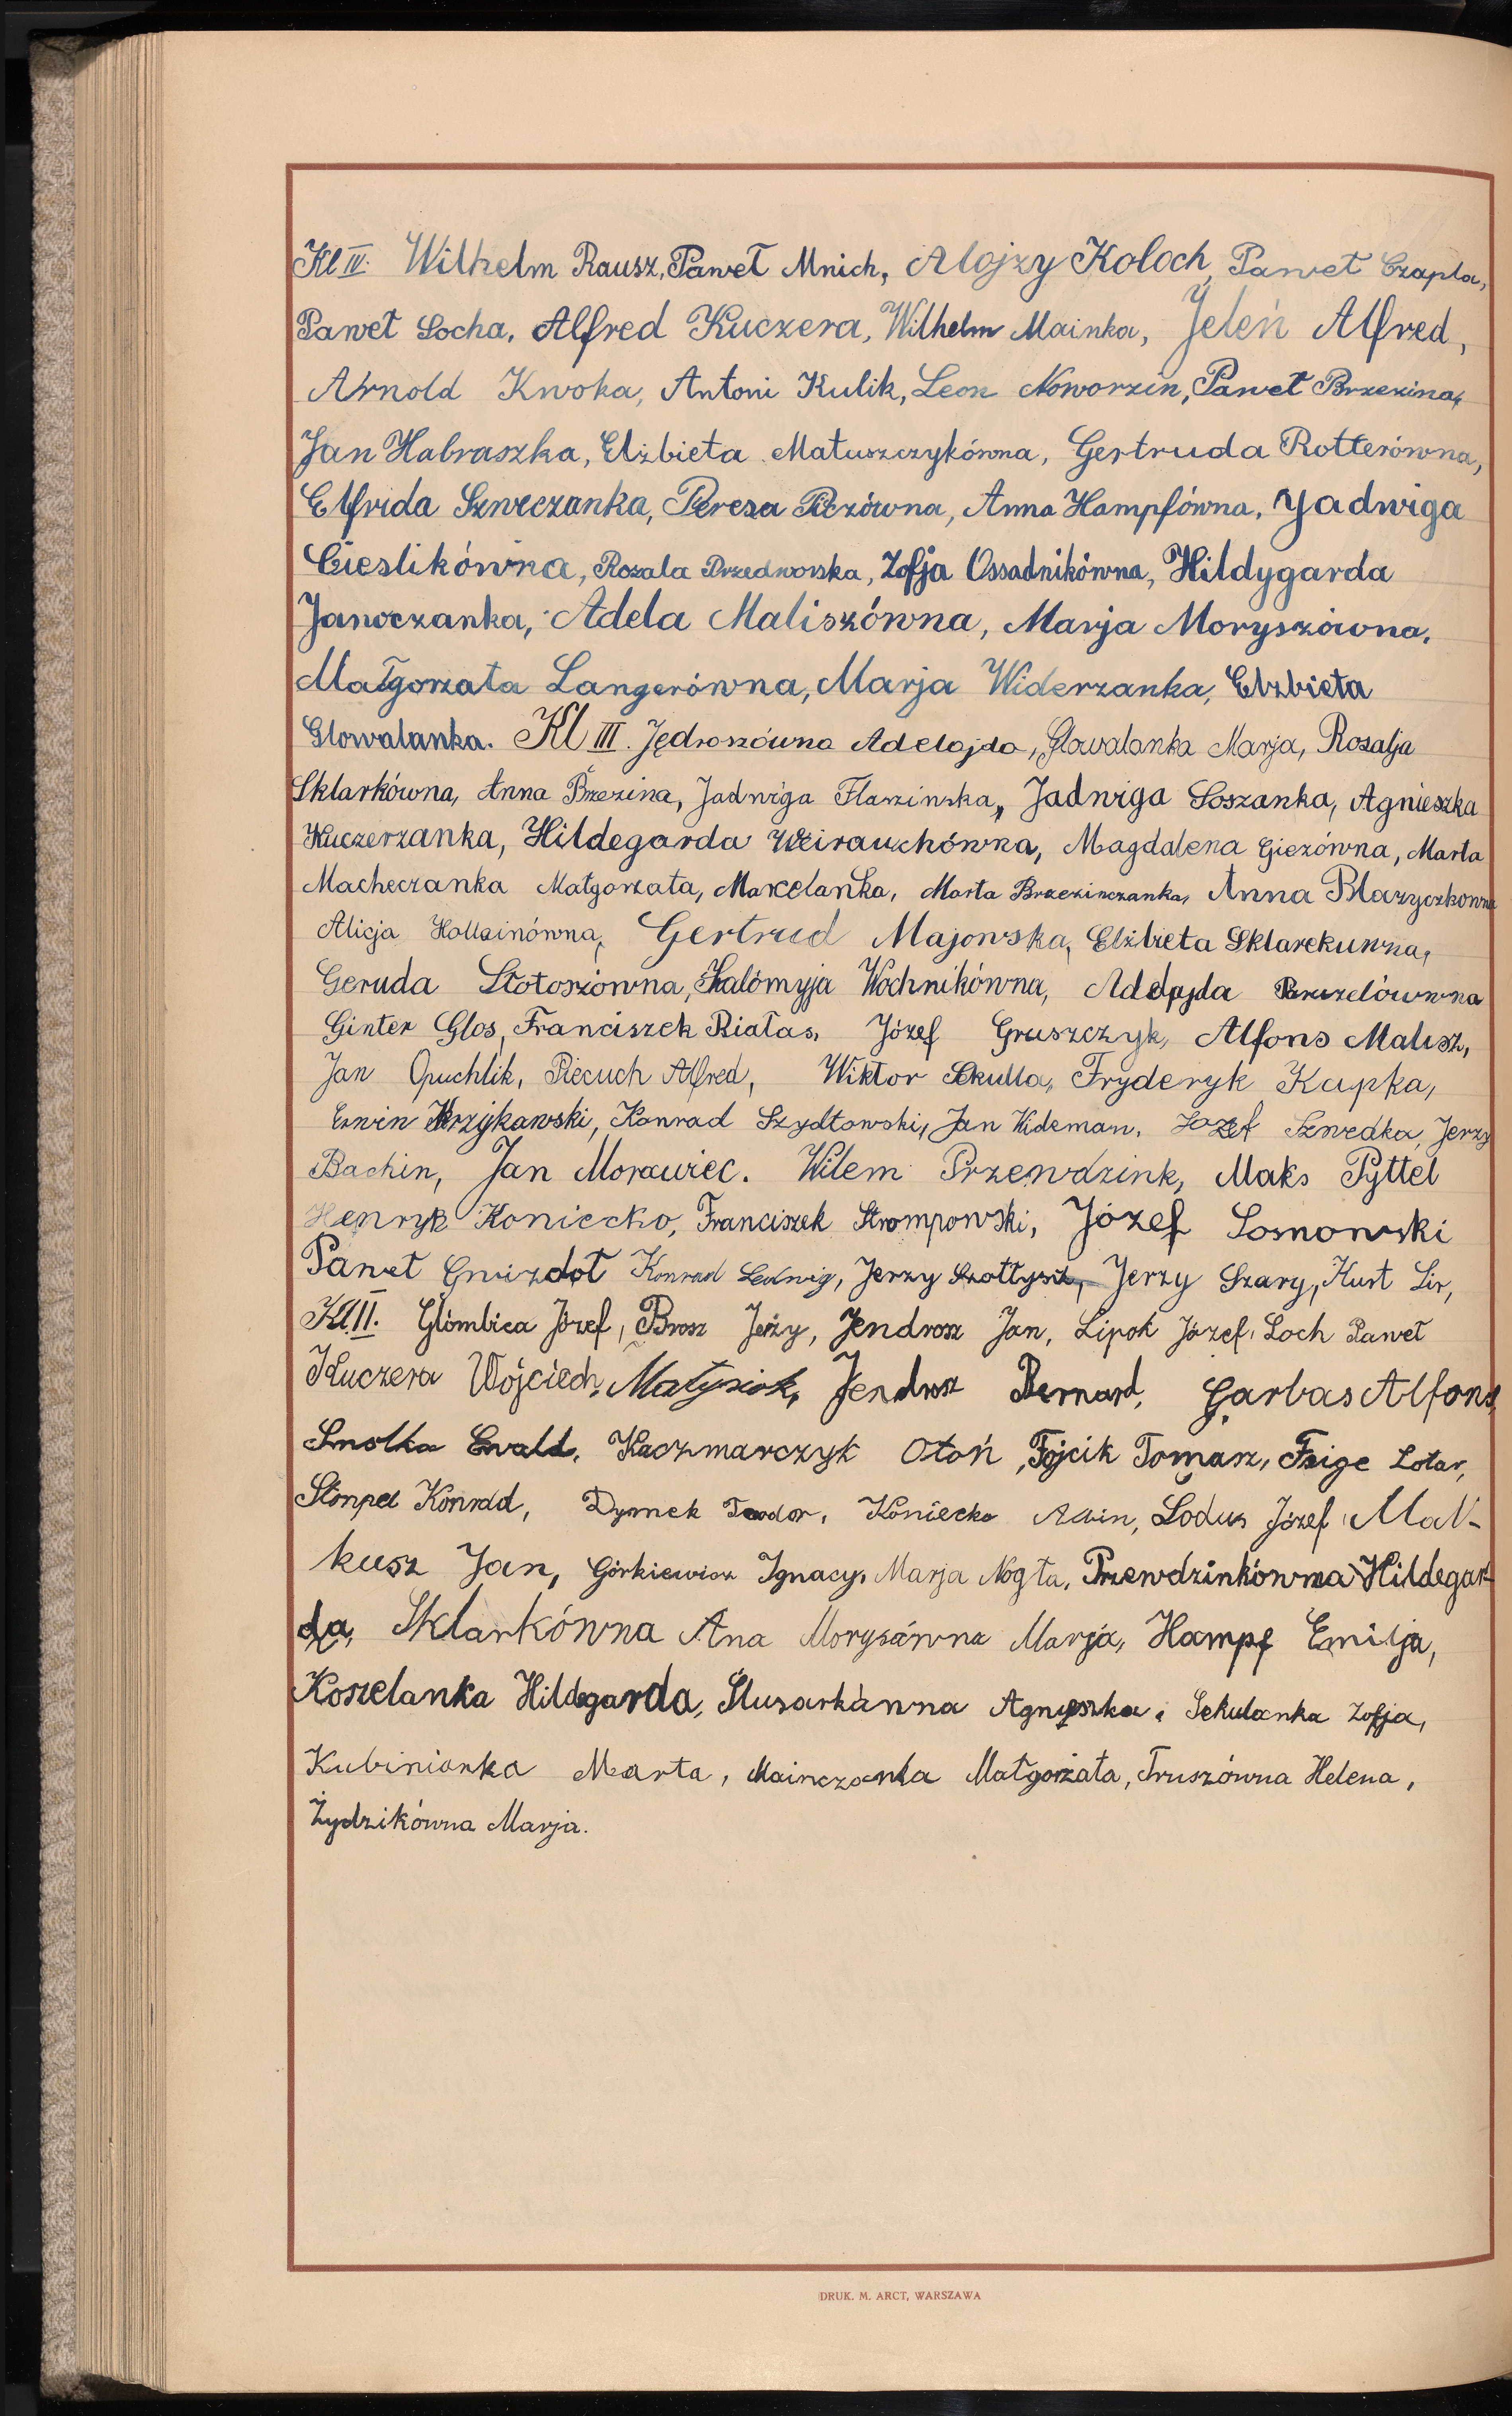 Kl IV. Wilhelm Rausz, Paweł Mnich, Alojzy Koloch, Paweł Czapla,
Paweł Socha, Alfred Kuczera, Wilhelm Mainka, Jeleń Alfred,
Arnold Kwoka, Antoni Kulik, Leon Noworzin, Paweł Brzezina,
Jan Habraszka, Elżbieta Matuszczykówna, Gertruda Rotterówna,
Elfrida Szweczanka, Teresa Piczówna, Anna Hampfówna, Jadwiga
Cieslikówna, Rozala Przedworska, Zofja Ossadnikówna, Hildygarda
Janoczanka, Adela Maliszówna, Marja Moryszówna,
Małgorzata Langerówna, Marja Widerzanka, Elzbieta
Glowalanka. Kl III. Jędroszówna Adelajda, Glowalanka Marja, Rozalja
Sklarkówna, Anna Brzezina, Jadwiga Flaszinska, Jadwiga Soszanka, Agnieszka
Kuczerzanka, Hildegarda Weirauchówna, Magdalena Giezówna, Marta
Macheczanka Małgorzata, Marcelanka, Marta Brzezinczanka, Anna Blazyczkowna
Alicja Hollainówna, Gertrud Majowska, Elżbieta Sklarekuwna,
Geruda Słotoszówna, Salómyja Wochnikówna, Adelajda
Ginter Glos, Franciszek Białas, Józef Gruszczyk, Alfons Malisz,
Jan Opuchlik, Piecuch Alfred, Wiktor Sekulla, Fryderyk Kupka,
Erwin Krzykawski, Konrad Szydłowski, Jan Wideman, Józef Szwedka, Jerzy
Bachin, Jan Morawiec. Wilem Przewdzink, Maks Pyttel
Henryk Koniecko, Franciszek Strompowski, Józef Sosnowski
Paweł Gwizdoł Konrad Ledwig, Jerzy Szołtysik, Jerzy Szary, Kurt Lis,
Kl II. Glombica Józef, Brosz Jerzy, Jendrosz Jan, Lipok Józef, Loch Paweł
Kuczera Wojciech, Matysiok, Jendrosz Bernard, Garbas Alfons,
Smolka Ewald, Kaczmarczyk Otoń, Fojcik Tomasz, Feige Lotar,
Stonpel Konrad, Dymek Teodor, Koniecko Alwin, Lodus Józef, Mal-
kusz Jan, Górkiewicz Ignacy, Marja Nogła, Przewdzinkówna Hildegar-
da, Sklarkówna Ana Morysówna Marja, Hampf Emilja,
Koszelanka Hildegarda, Slusarkówna Agnieszka, Sekulanka Zofja,
Kubinianka Marta, Mainczanka Małgorzata, Truszówna Helena,
Żydzikówna Marja.
DRUK. M. ARCT, WARSZAWA